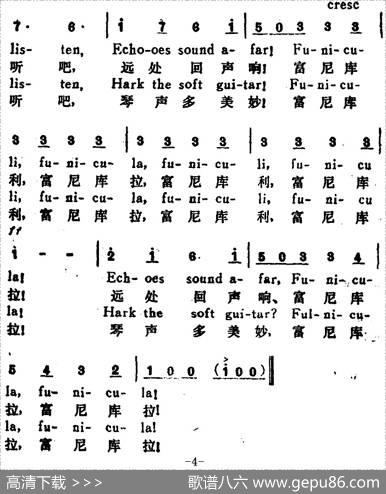 cresc
7· 6· | i 7 6 i | 5 0 3 3 3
lis- ten, Echo-oes sound a- far! Fu- ni- cu-
听 吧, 远 处 回 声 响! 富 尼 库
lis- ten, Hark the soft gui-tar! Fu- ni- cu-
听 吧, 琴 声 多 美 妙! 富 尼 库
3 3 3 3 | 3 3 3 3 | 3 3 3 3
li, fu- ni- cu- la, fu- ni- cu- li, fu- ni- cu
利, 富 尼 库 拉, 富 尼 库 利, 富 尼 库
li, fu- ni- cu- la, fu- ni- cu- li, fu- ni- cu-
利, 富 尼 库 拉, 富 尼 库 利, 富 尼 库
ff
i - - | 2 i 6· i | 5 0 3 3 4
la! Ech- oes sound a- far, Fu- ni- cu-
拉! 远 处 回 声 响、 富 尼 库
la! Hark the soft gui-tar? Ful- ni- cu-
拉! 琴 声 多 美 妙, 富 尼 库
5 4 3 2 | 1 0 0 (i 0 0)
la, fu- ni- cu- la!
拉, 富 尼 库 拉!
la, fu- ni- cu- la!
拉, 富 尼 库 拉!
-4-
高清下载 >>> 歌谱八六 www.gepu86.com